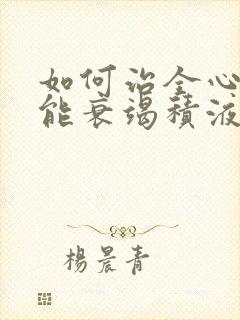 如何治全心
能衰竭積液
楊晨青